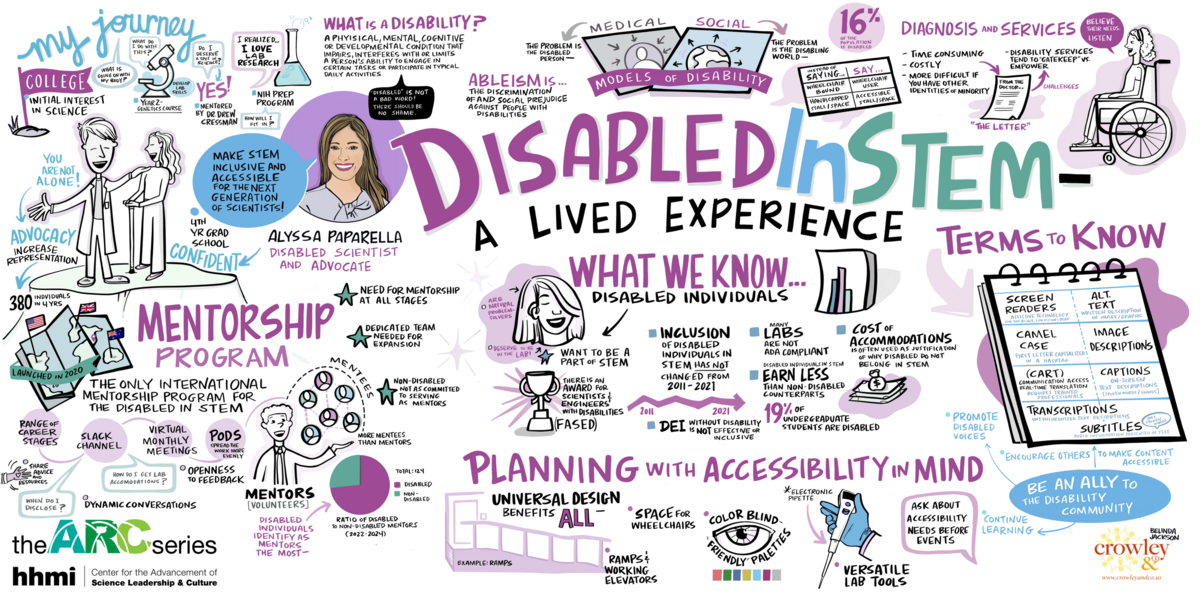 my journey
COLLEGE
INITIAL INTEREST
IN SCIENCE
WHAT IS
GOING ON WITH
MY BODY?
WHAT DO
I DO WITH
THIS?
DEVELOP
LAB
SKILLS
YEAR 2-
GENETICS COURSE
DO I
DESERVE
A SPOT IN
SCIENCE?
YES!
MENTORED
BY DR DREW
CRESSMAN
I REALIZED...
I LOVE
LAB
RESEARCH
NIH PREP
PROGRAM
HOW WILL I
FIT IN?
YOU
ARE NOT
ALONE!
ADVOCACY
INCREASE
REPRESENTATION
MAKE STEM
INCLUSIVE AND
ACCESSIBLE
FOR THE NEXT
GENERATION
OF SCIENTISTS!
4TH
YR GRAD
SCHOOL
CONFIDENT
ALYSSA PAPARELLA
DISABLED SCIENTIST
AND ADVOCATE
WHAT IS A DISABILITY?
A PHYSICAL, MENTAL, COGNITIVE
OR DEVELOPMENTAL CONDITION THAT
IMPAIRS, INTERFERES WITH OR LIMITS
A PERSON'S ABILITY TO ENGAGE IN
CERTAIN TASKS OR PARTICIPATE IN TYPICAL
DAILY ACTIVITIES
"DISABLED" IS NOT
A BAD WORD!
THERE SHOULD BE
NO SHAME.
ABLEISM IS...
THE DISCRIMINATION
OF AND SOCIAL PREJUDICE
AGAINST PEOPLE WITH
DISABILITIES
MEDICAL
SOCIAL
THE PROBLEM IS
THE DISABLED
PERSON—
THE PROBLEM
IS THE DISABLING
WORLD—
MODELS OF DISABILITY
16%
OF THE
POPULATION
IS DISABLED
INSTEAD OF
SAYING...
SAY...
WHEELCHAIR
BOUND
WHEELCHAIR
USER
HANDICAPPED
STALL/SPACE
ACCESSIBLE
STALL/SPACE
DIAGNOSIS AND SERVICES
- TIME CONSUMING
- COSTLY
- MORE DIFFICULT IF
YOU HAVE OTHER
IDENTITIES OF MINORITY
- DISABILITY SERVICES
TEND TO "GATEKEEP" VS
EMPOWER
CHALLENGES
FROM THE
DOCTOR...
"THE LETTER"
BELIEVE
THEIR NEEDS.
LISTEN
DISABLEDInSTEM—
A LIVED EXPERIENCE
380 INDIVIDUALS
IN 4 YRS
LAUNCHED IN 2020
MENTORSHIP
PROGRAM
THE ONLY INTERNATIONAL
MENTORSHIP PROGRAM FOR
THE DISABLED IN STEM
NEED FOR MENTORSHIP
AT ALL STAGES
DEDICATED TEAM
NEEDED FOR
EXPANSION
NON-DISABLED
NOT AS COMMITTED
TO SERVING
AS MENTORS
RANGE OF
CAREER
STAGES
SLACK
CHANNEL
VIRTUAL
MONTHLY
MEETINGS
PODS
SPREAD THE
WORK MORE
EVENLY
SHARE
ADVICE
AND
RESOURCES
HOW DO I GET LAB
ACCOMODATIONS?
OPENNESS
TO FEEDBACK
WHEN DO I
DISCLOSE?
DYNAMIC CONVERSATIONS
MENTEES
MORE MENTEES
THAN MENTORS
MENTORS
[VOLUNTEERS]
DISABLED
INDIVIDUALS
IDENTIFY AS
MENTORS
THE MOST—
TOTAL: 124
DISABLED
NON-
DISABLED
RATIO OF DISABLED
TO NON-DISABLED MENTORS
(2022-2024)
WHAT WE KNOW...
DISABLED INDIVIDUALS
ARE
NATURAL
PROBLEM-
SOLVERS
DESERVE TO BE
IN THE LAB!
WANT TO BE A
PART OF STEM
THERE IS AN
AWARD FOR
SCIENTISTS &
ENGINEERS
WITH DISABILITIES
(FASED)
INCLUSION
OF DISABLED
INDIVIDUALS IN
STEM HAS NOT
CHANGED FROM
2011-2021
2011
2021
DEI WITHOUT DISABILITY
IS NOT EFFECTIVE OR
INCLUSIVE
MANY
LABS
ARE NOT
ADA COMPLIANT
DISABLED INDIVIDUALS IN STEM
EARN LESS
THAN NON-DISABLED
COUNTERPARTS
19% OF
UNDERGRADUATE
STUDENTS ARE DISABLED
COST OF
ACCOMMODATIONS
IS OFTEN USED AS JUSTIFICATION
OF WHY DISABLED DO NOT
BELONG IN STEM
TERMS TO KNOW
SCREEN
READERS
ALT.
TEXT
WRITTEN DESCRIPTION
OF IMAGE/GRAPHIC
CAMEL
CASE
FIRST LETTER CAPITALIZED
IN A HASHTAG
IMAGE
DESCRIPTIONS
(CART)
COMMUNICATION ACCESS
REAL-TIME TRANSLATION
REQUIRES TRAINED
PROFESSIONALS
CAPTIONS
ON-SCREEN
TEXT DESCRIPTIONS
TRANSCRIPTIONS
SUBTITLES
PROMOTE
DISABLED
VOICES
ENCOURAGE OTHERS TO MAKE CONTENT
ACCESSIBLE
BE AN ALLY TO
THE DISABILITY
COMMUNITY
CONTINUE
LEARNING
PLANNING WITH ACCESSIBILITY IN MIND
UNIVERSAL DESIGN
BENEFITS ALL—
EXAMPLE: RAMPS
SPACE FOR
WHEELCHAIRS
RAMPS &
WORKING
ELEVATORS
COLOR BLIND-
FRIENDLY PALETTES
*ELECTRONIC
PIPETTE
VERSATILE
LAB TOOLS
ASK ABOUT
ACCESSIBILITY
NEEDS BEFORE
EVENTS
the ARC series
hhmi | Center for the Advancement of
Science Leadership & Culture
BELINDA
JACKSON
crowley
& CO
www.crowleyandco.us